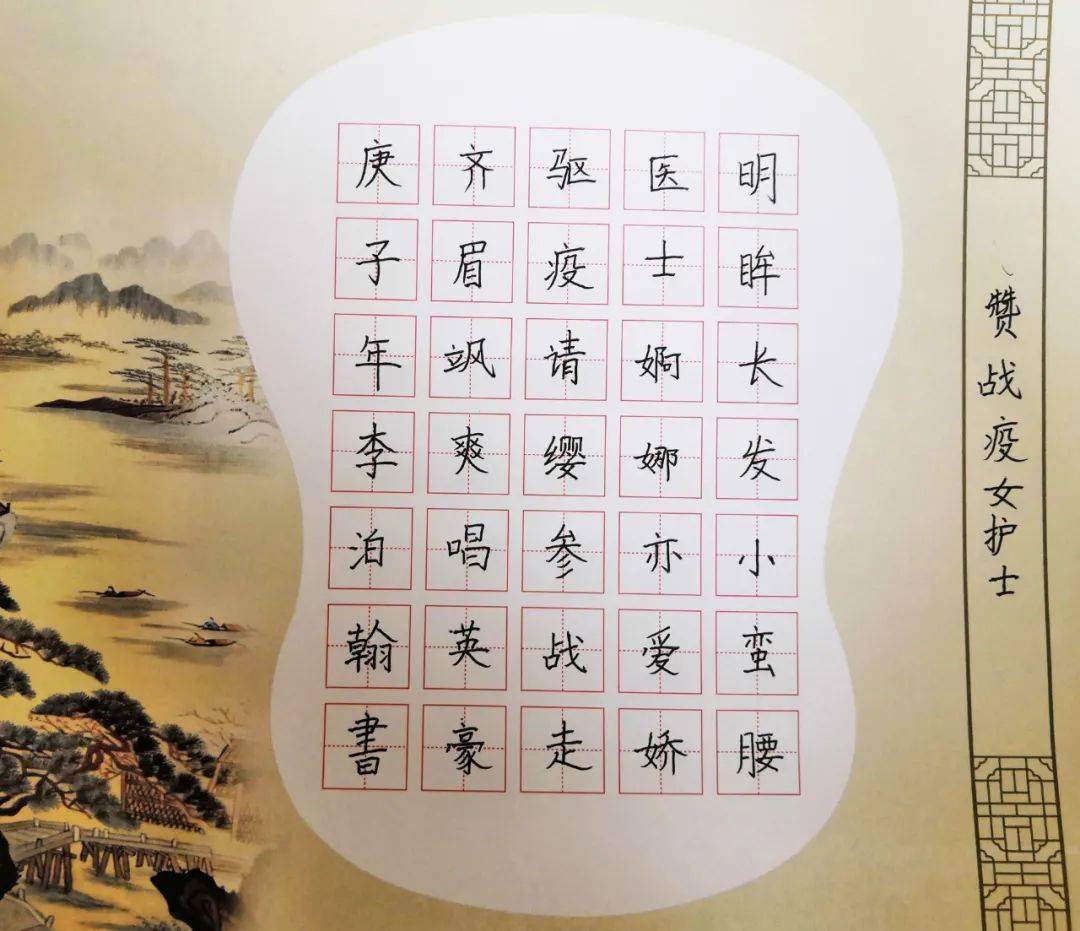 赞战疫女护士
明眸长发小蛮腰
医士婀娜亦爱娇
驱疫请缨参战走
齐眉飒爽唱英豪
庚子年李泊翰書